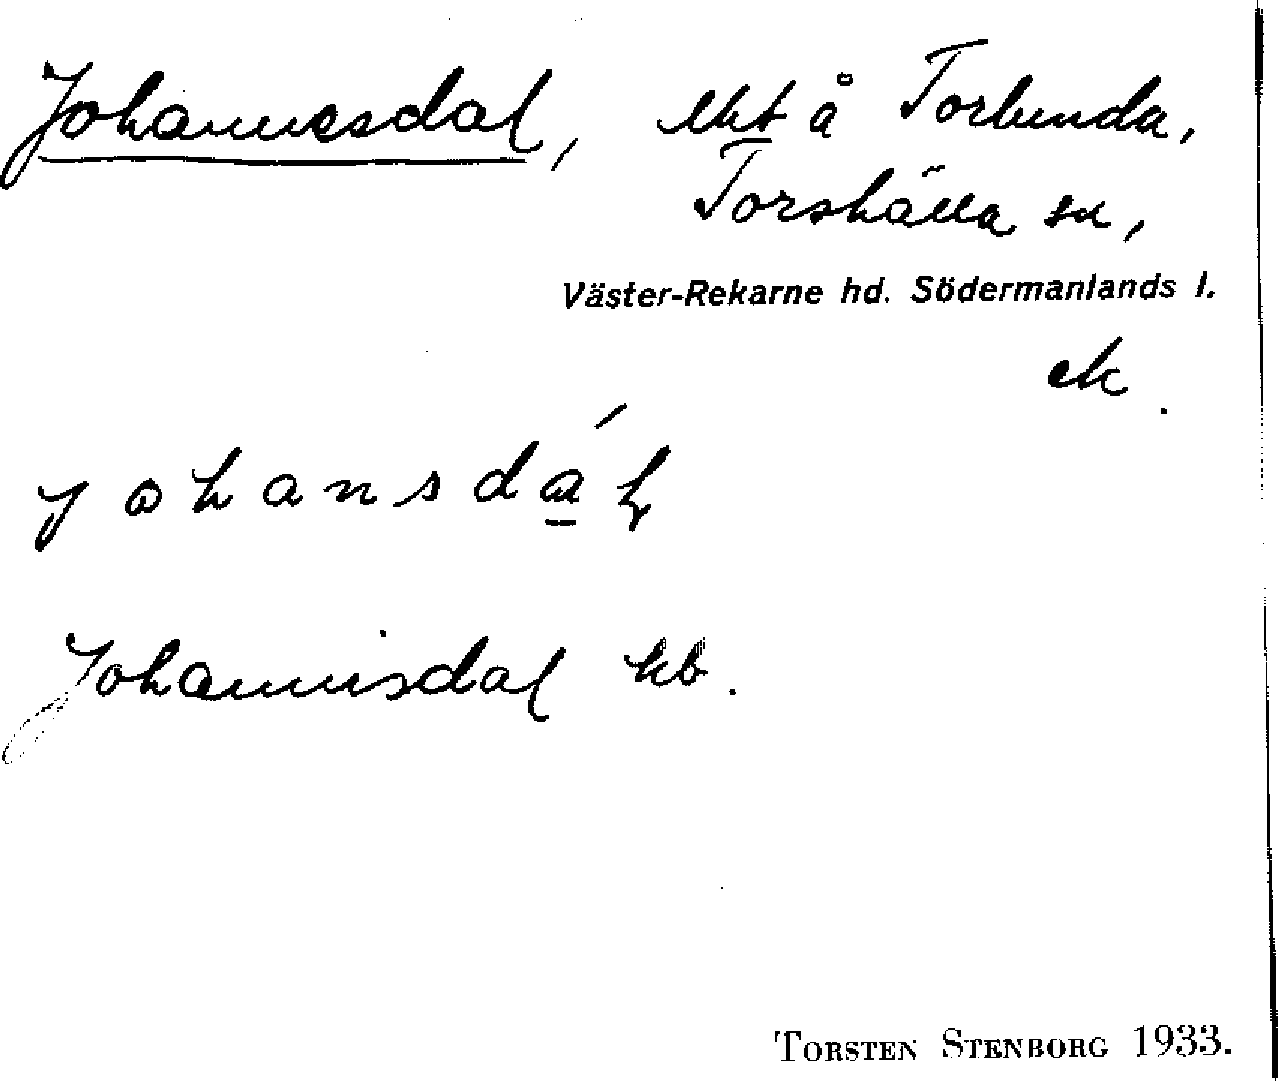 Johannesdal, lht å Torlunda,
Torshälla sn,
Väster-Rekarne hd. Södermanlands l.
ek.
johansdál
Johannisdal kb.
TORSTEN STENBORG 1933.